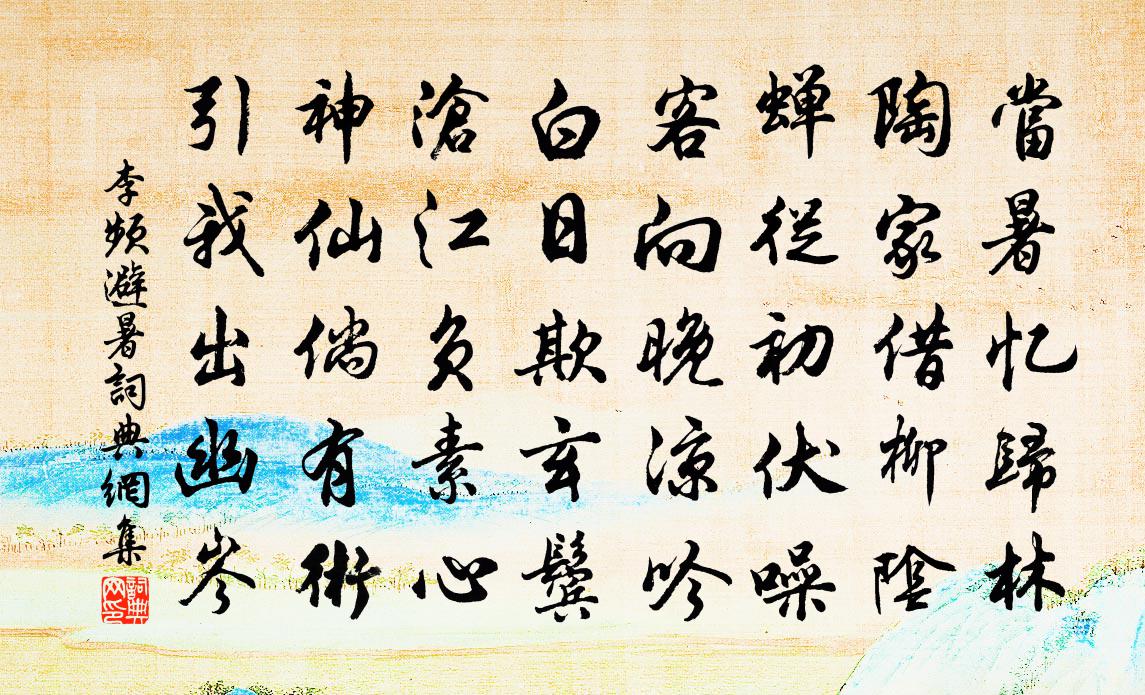 當暑忆歸林
陶家借柳陰
蝉從初伏噪
客向晚涼吟
白日欺玄鬓
滄江负素心
神仙倘有術
引我出幽岑
李频避暑詞典網集
詞典網印